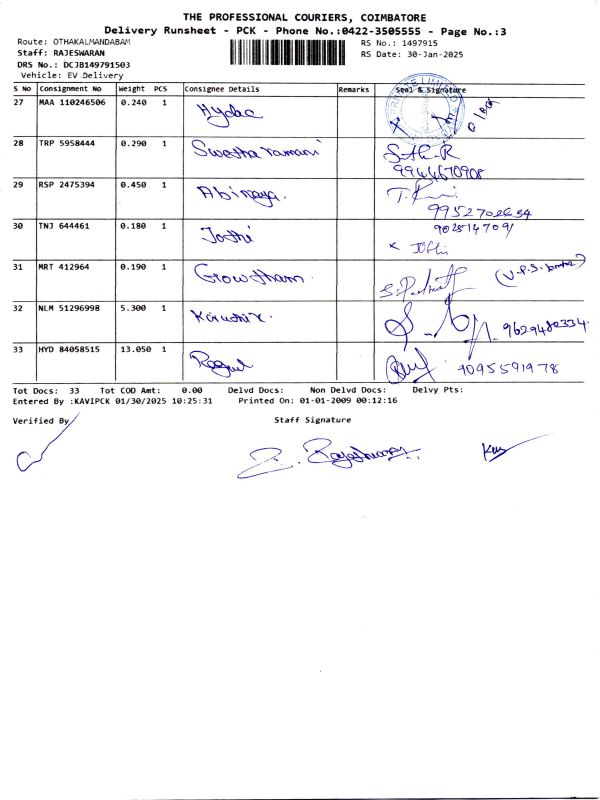 THE PROFESSIONAL COURIERS, COIMBATORE
Delivery Runsheet - PCK - Phone No.:0422-3505555 - Page No.:3
Route: OTHAKALMANDABAM RS No.: 1497915
Staff: RAJESWARAN RS Date: 30-Jan-2025
DRS No.: DCJB149791503
Vehicle: EV Delivery
S No Consignment No Weight PCS Consignee Details Remarks Seal & Signature
27 MAA 110246506 0.240 1 Hydac
28 TRP 5958444 0.290 1 Swetha ramani
9944670908
29 RSP 2475394 0.450 1 Abinaya.
9952702654
30 TNJ 644461 0.180 1 Jothi 9025147091
x Jothi
31 MRT 412964 0.190 1 Growtham.
32 NLM 51296998 5.300 1 9629480334
33 HYD 84058515 13.050 1 9095591978
Tot Docs: 33 Tot COD Amt: 0.00 Delvd Docs: Non Delvd Docs: Delvy Pts:
Entered By :KAVIPCK 01/30/2025 10:25:31 Printed On: 01-01-2009 00:12:16
Verified By Staff Signature